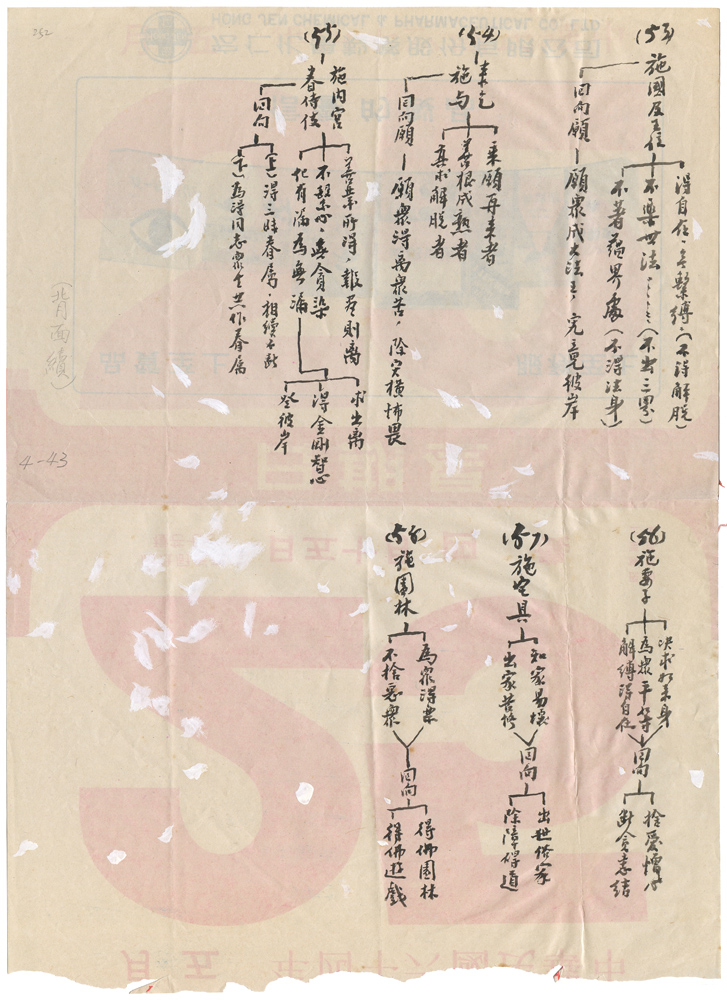 (53)
施國及王位
得自在，無繫縛，(不得解脫)
不樂世法，……(不出三界)
不著蘊界處(不得法身)
回向願—願眾成大法王，究竟彼岸
(54)
來乞
施与
乘願再來者
善根成熟者
真求解脫者
回向願—願眾得離眾苦，除災橫怖畏
(55)
施內宮
眷侍伎
善業所得，報盡則離
不貪染
化有漏為無漏
求出離
得金剛智心
登彼岸
回向
(上)得三昧眷屬，相續不斷
(下)為諸同志眾生共作眷屬
(背面續)
(56)
施妻子
決求如來身
為眾平等
解縛得自在
回向
捨愛憎
斷貪恚結
(57)
施
具
知家易壞
出家苦修
回向
出世俗家
除障得道
(58)
施園林
為眾得樂
不捨惡眾
回向
得佛園林
得佛遊戲
352
4-43
HONG JEN CHEMICAL & PHARMACEUTICAL CO., LTD.
中華民國六十四年 五月